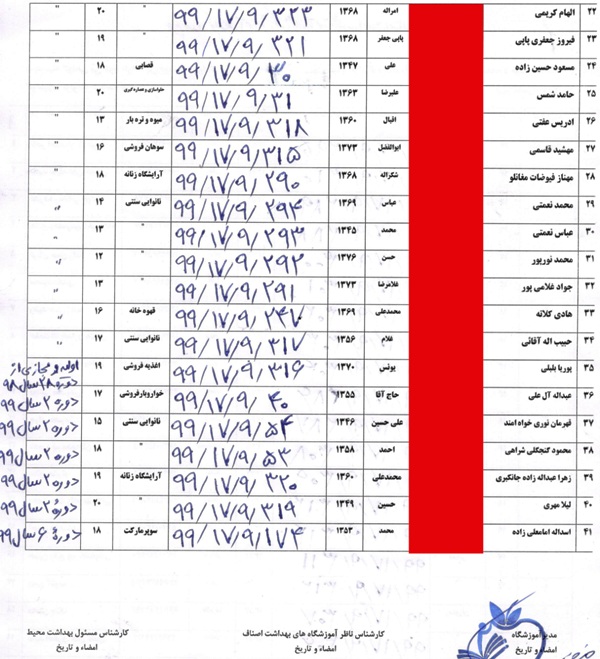 ۲۲ الهام کریمی امراله ۱۳۶۸ ۹۹/۱۷/۹/۳۲۳ " ۲۰ "
۲۳ فیروز جعفری پاپی پاپی جعفر ۱۳۶۸ ۹۹/۱۷/۹/۳۲۱ " ۱۹ "
۲۴ مسعود حسین زاده علی ۱۳۴۷ ۹۹/۱۷/۹/۳۰ قصابی ۱۸ "
۲۵ حامد شمس علیرضا ۱۳۶۳ ۹۹/۱۷/۹/۳۱ حلواسازی و عصاره گیری ۲۰ "
۲۶ ادریس عفتی اقبال ۱۳۶۰ ۹۹/۱۷/۹/۳۱۸ میوه و تره بار ۱۳ "
۲۷ مهشید قاسمی ابوالفضل ۱۳۷۳ ۹۹/۱۷/۹/۳۱۵ سوهان فروشی ۱۶ "
۲۸ مهناز فیوضات مغانلو شکراله ۱۳۶۸ ۹۹/۱۷/۹/۲۹۰ آرایشگاه زنانه ۱۸ "
۲۹ محمد نعمتی عباس ۱۳۶۹ ۹۹/۱۷/۹/۲۹۴ نانوایی سنتی ۱۴ "
۳۰ عباس نعمتی محمد ۱۳۴۵ ۹۹/۱۷/۹/۲۹۳ " ۱۳ "
۳۱ محمد نورپور حسن ۱۳۷۶ ۹۹/۱۷/۹/۲۹۲ " ۱۲ "
۳۲ جواد غلامی پور غلامرضا ۱۳۷۳ ۹۹/۱۷/۹/۲۹۱ " ۱۳ "
۳۳ هادی کلاته محمدعلی ۱۳۶۹ ۹۹/۱۷/۹/۲۴۷ قهوه خانه ۱۶ "
۳۴ حبیب اله آقائی غلام ۱۳۵۶ ۹۹/۱۷/۹/۳۱۷ نانوایی سنتی ۱۷ "
۳۵ پوریا بلبلی یونس ۱۳۷۰ ۹۹/۱۷/۹/۳۱۶ اغذیه فروشی ۱۹ دوره ۲۸ سال ۹۸
۳۶ عبداله آل علی حاج آقا ۱۳۵۵ ۹۹/۱۷/۹/۴۰ خواروبارفروشی ۱۷ دوره ۲ سال ۹۹
۳۷ قهرمان نوری خواه امند علی حسین ۱۳۴۶ ۹۹/۱۷/۹/۵۴ نانوایی سنتی ۱۵ دوره ۲ سال ۹۹
۳۸ محمود گنجگلی شراهی احمد ۱۳۵۸ ۹۹/۱۷/۹/۵۳ " ۱۸ دوره ۲ سال ۹۹
۳۹ زهرا عبداله زاده جانکبری محمدعلی ۱۳۶۰ ۹۹/۱۷/۹/۳۲۰ آرایشگاه زنانه ۱۹ دوره ۲ سال ۹۹
۴۰ لیلا مهری حسین ۱۳۴۹ ۹۹/۱۷/۹/۳۱۹ " ۲۰ دوره ۲ سال ۹۹
۴۱ اسداله امامعلی زاده محمد ۱۳۵۳ ۹۹/۱۷/۹/۱۷۴ سوپرمارکت ۱۸ دوره ۶ سال ۹۹
مدیر آموزشگاه کارشناس ناظر آموزشگاه های بهداشت اصناف کارشناس مسئول بهداشت محیط
امضاء و تاریخ امضاء و تاریخ امضاء و تاریخ